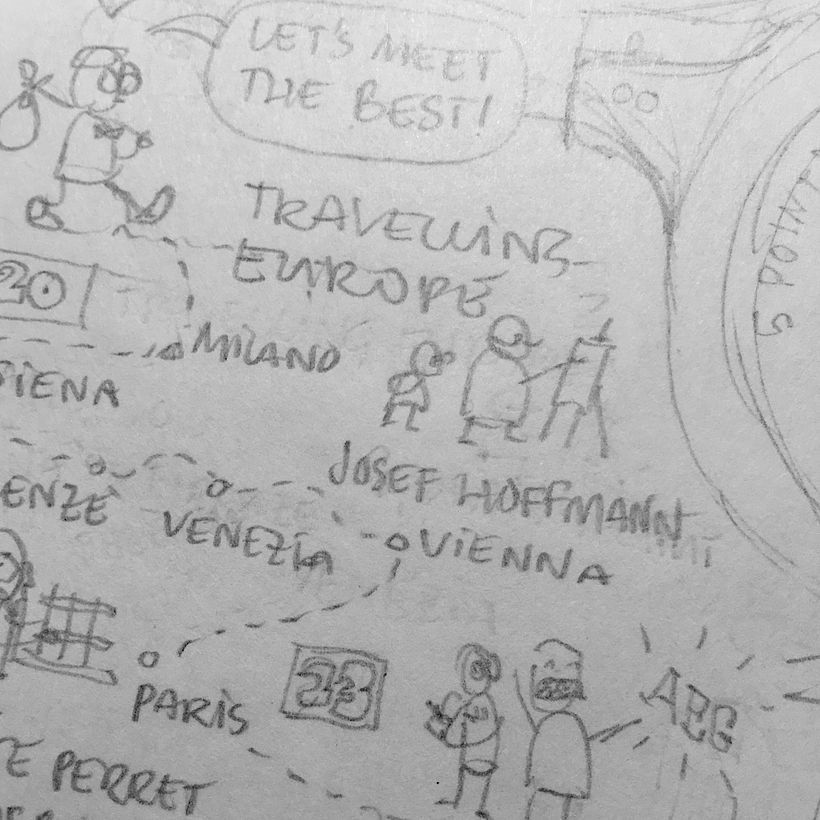 LET'S MEET
THE BEST!
TRAVELLING
EUROPE
20
MILANO
SIENA
JOSEF HOFFMANN
ENZE
VENEZIA
VIENNA
PARIS
23
ABG
E PERRET